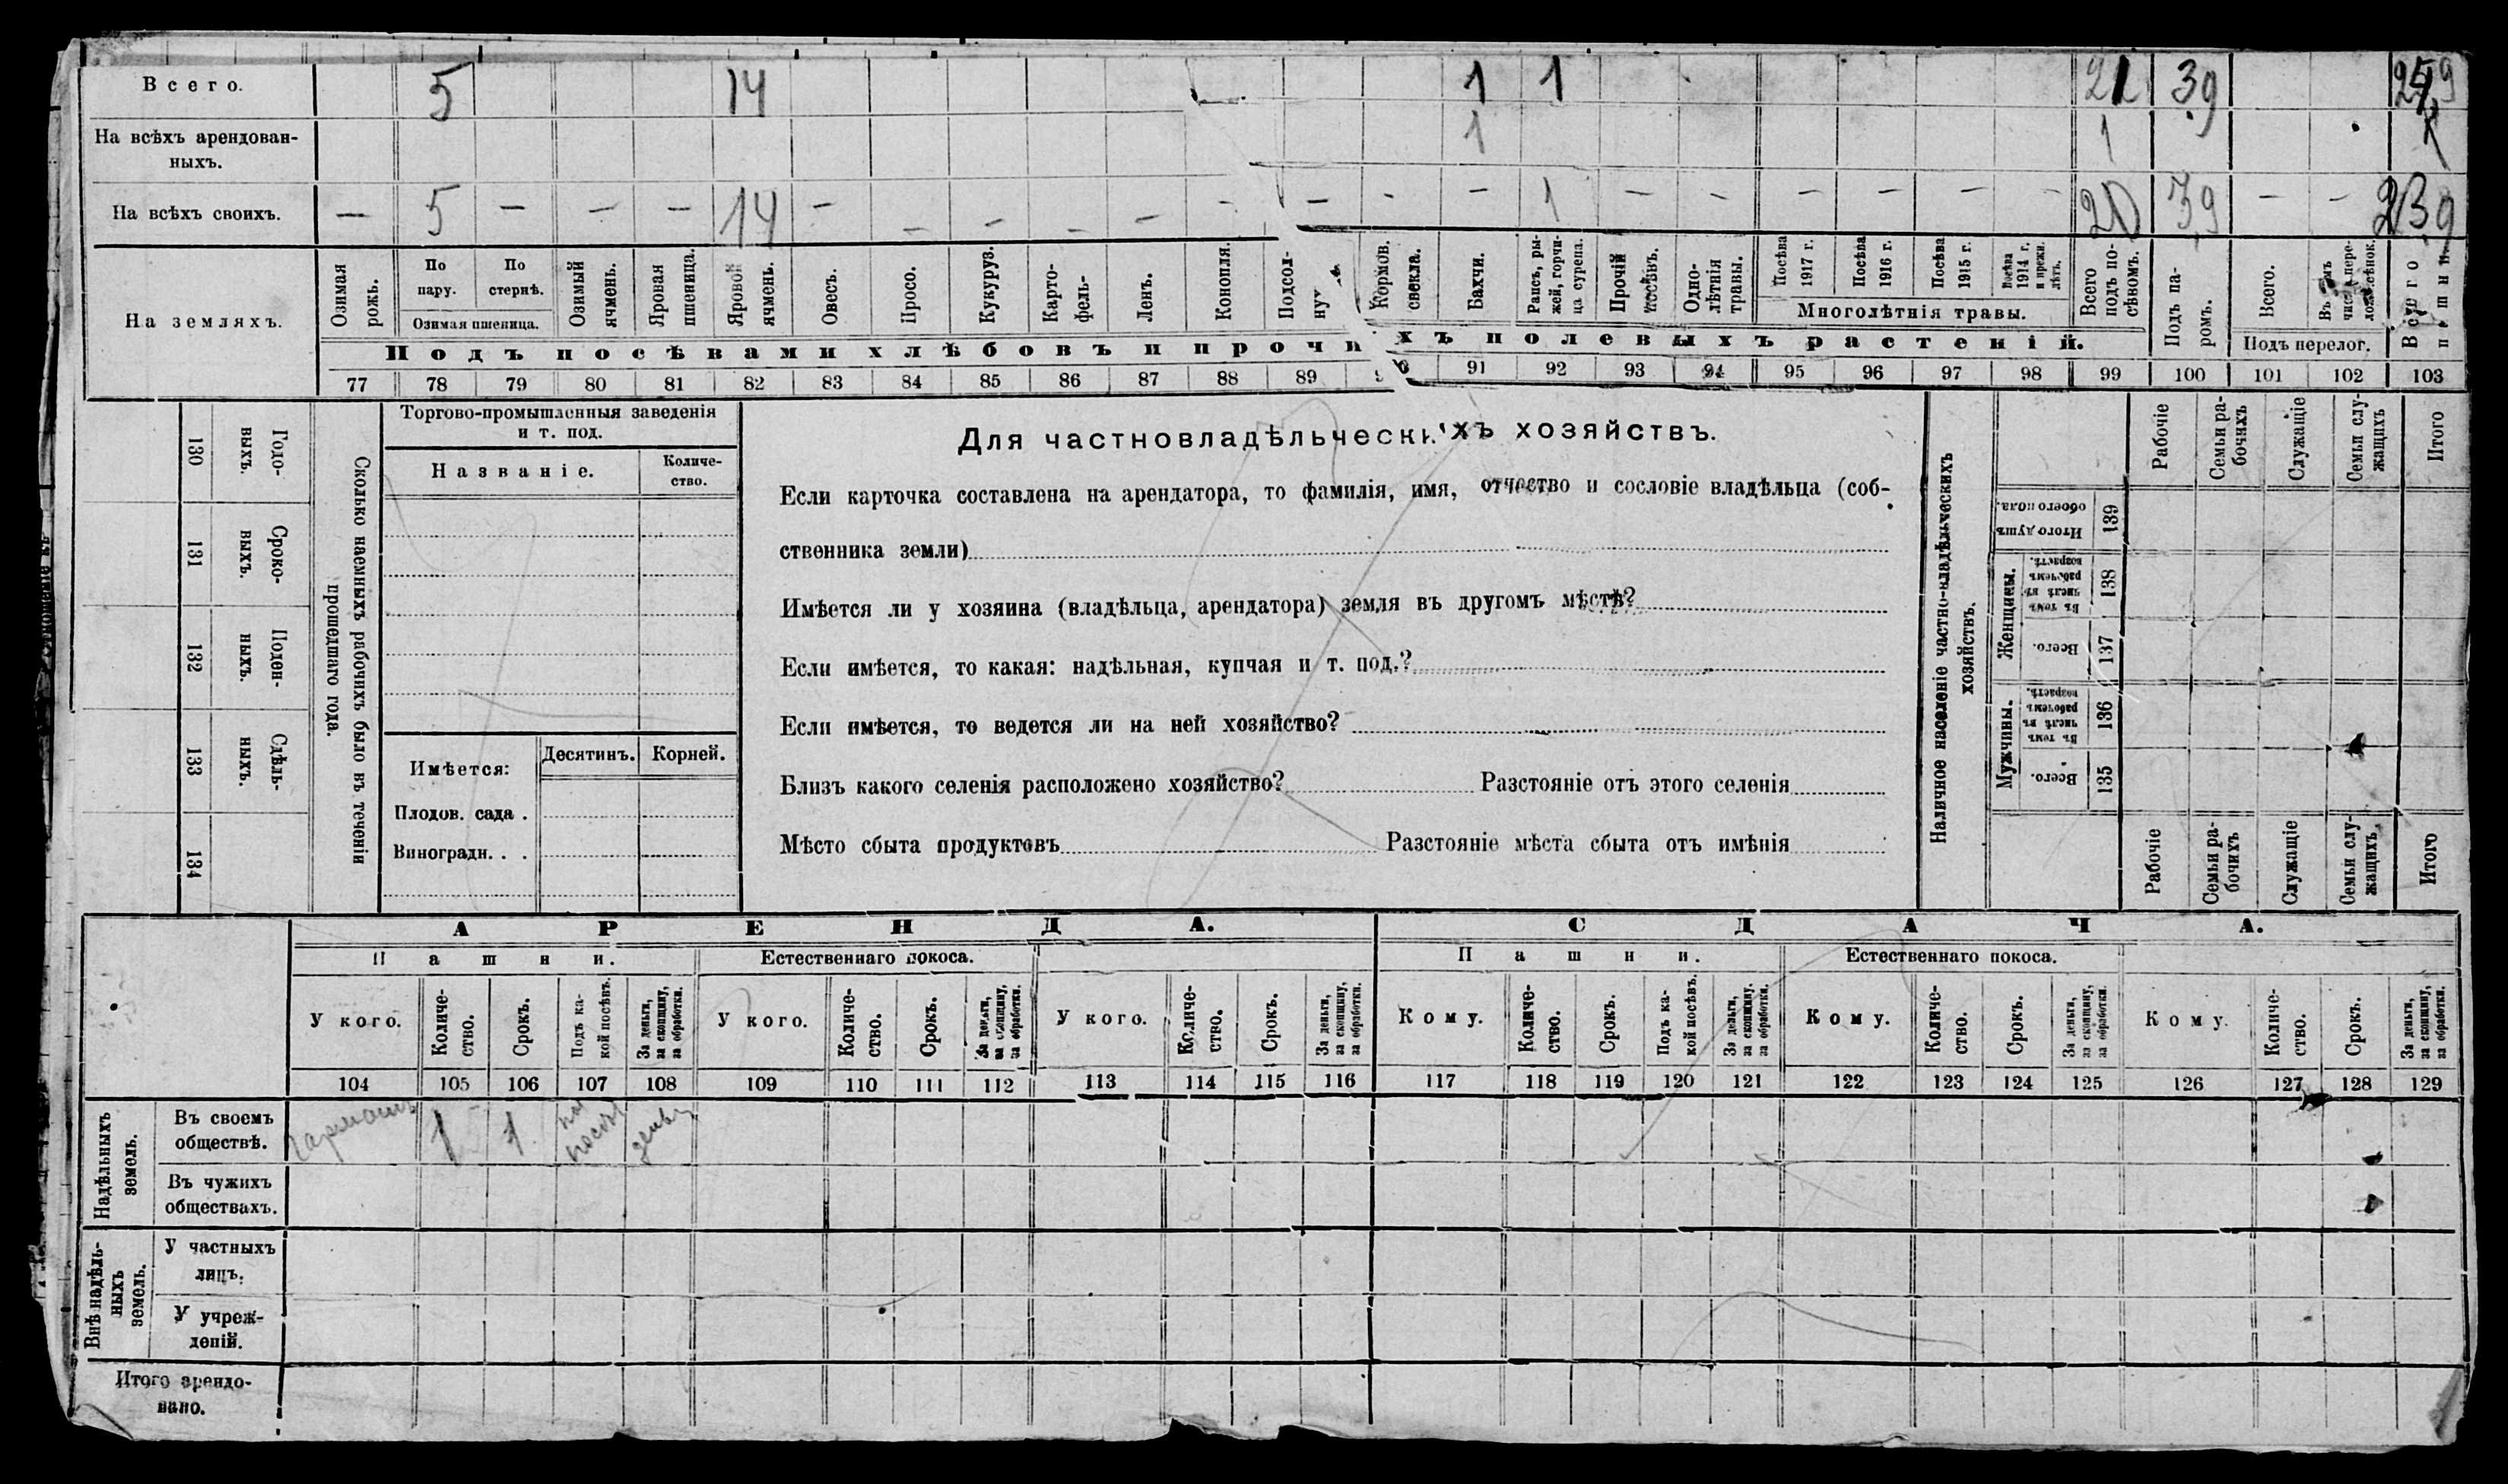 Всего. 5 14 1 1 39
На всѣхъ арендован-
ныхъ. 1 1
На всѣхъ своихъ. — 5 — — — 14 — — — — — — — — — — 1 — — — — — — 20 39 — — 239
На земляхъ.
Озимая
рожь.
По
пару.
По
стернѣ.
Озимая пшеница.
Озимый
ячмень.
Яровая
пшеница.
Яровой
ячмень.
Овесъ.
Просо.
Кукуруз.
Карто-
фель.
Ленъ.
Конопля.
Подсол-
ну
Кормов.
свекла.
Бахчи.
Рапсъ, ры-
жей, горчи-
ца сурепа.
Прочій
посѣвъ.
Одно-
лѣтнія
травы.
Посѣва
1917 г.
Посѣва
1916 г.
Посѣва
1915 г.
Посѣва
1914 г.
и прежн.
лѣтъ.
Многолѣтнія травы.
Всего
подъ по-
сѣвомъ.
Подъ па-
ромъ.
Всего.
Въ томъ
числѣ пере-
Подъ перелог.
Всего
пашни.
Подъ посѣвами хлѣбовъ и прочихъ полевыхъ растеній.
77 78 79 80 81 82 83 84 85 86 87 88 89 91 92 93 94 95 96 97 98 99 100 101 102 103
130
Годо-
выхъ.
131
Сроко-
выхъ.
132
Поден-
ныхъ.
133
Сдѣль-
ныхъ.
134
Сколько наемныхъ рабочихъ было въ теченіи
прошедшаго года.
Торгово-промышленныя заведенія
и т. под.
Названіе.
Количе-
ство.
Имѣется:
Десятинъ.
Корней.
Плодов. сада .
Виноградн. . .
Для частновладѣльческихъ хозяйствъ.
Если карточка составлена на арендатора, то фамилія, имя, отчество и сословіе владѣльца (соб-
ственника земли)
Имѣется ли у хозяина (владѣльца, арендатора) земля въ другомъ мѣстѣ?
Если имѣется, то какая: надѣльная, купчая и т. под.?
Если имѣется, то ведется ли на ней хозяйство?
Близъ какого селенія расположено хозяйство? Разстояніе отъ этого селенія
Мѣсто сбыта продуктовъ Разстояніе мѣста сбыта отъ имѣнія
Наличное населеніе частно-владѣльческихъ
хозяйствъ.
Рабочіе
Семьи ра-
бочихъ
Служащіе
Семьи слу-
жащихъ
Итого
Итого душъ
обоего пола.
139
Женщины.
Въ томъ
числѣ въ
рабочемъ
возрастѣ.
138
Всего.
137
Мужчины.
Въ томъ
числѣ въ
рабочемъ
возрастѣ.
136
Всего.
135
Рабочіе
Семьи ра-
бочихъ
Служащіе
Семьи слу-
жащихъ
Итого
АРЕНДА. СДАЧА.
Пашни. Естественнаго покоса. Пашни. Естественнаго покоса.
У кого.
Количе-
ство.
Срокъ.
Подъ ка-
кой посѣвъ.
За деньги,
за скопщину,
за обработки.
У кого.
Количе-
ство.
Срокъ.
За деньги,
за скопщину,
за обработки.
У кого.
Количе-
ство.
Срокъ.
За деньги,
за скопщину,
за обработки.
Кому.
Количе-
ство.
Срокъ.
Подъ ка-
кой посѣвъ.
За деньги,
за скопщину.
за обработки.
Кому.
Количе-
ство.
Срокъ.
За деньги,
за скопщину,
за обработки.
Кому.
Количе-
ство.
Срокъ.
За деньги,
за скопщину,
за обработки.
104 105 106 107 108 109 110 111 112 113 114 115 116 117 118 119 120 121 122 123 124 125 126 127 128 129
Надѣльныхъ
земель.
Въ своемъ
обществѣ. 1 1
Въ чужихъ
обществахъ.
Внѣ надѣль-
ныхъ
земель.
У частныхъ
лицъ.
У учреж-
деній.
Итого арендо-
вано.